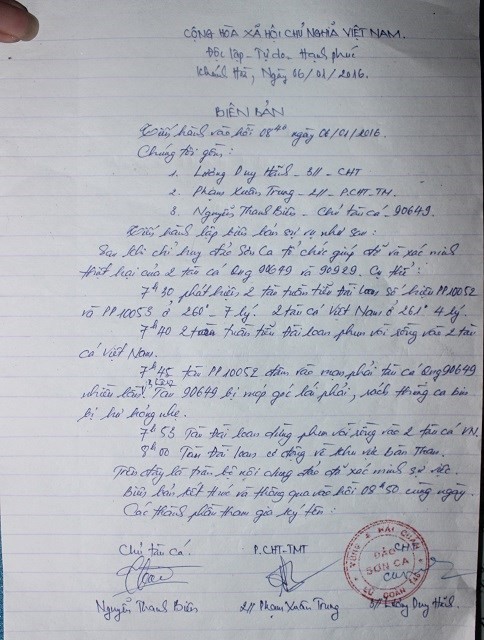 CỘNG HÒA XÃ HỘI CHỦ NGHĨA VIỆT NAM.
Độc lập - Tự do Hạnh phúc
Khánh Hòa, Ngày 06/01/2016.
BIÊN BẢN
Tiến hành vào hồi 08h40 ngày 06/01/2016.
Chúng tôi gồm:
1. Lương Duy Hãnh - 3// - CHT
2. Phạm Xuân Trung - 2// - P.CHT-TM.
3. Nguyễn Thanh Biên - Chủ tàu cá - 90649.
Tiến hành lập biên bản sự vụ như sau:
Sau khi chỉ huy đảo Sơn Ca tổ chức giúp đỡ và xác minh
thiệt hại của 2 tàu cá Qng 90649 và 90929. Cụ thể:
7h30, phát hiện 2 tàu tuần tiễu Đài loan số hiệu PP10052
và PP10053 ở 260° - 7 lý. 2 tàu cá Việt Nam ở 261° 4 lý.
7h40 2 tàu tuần tiễu Đài loan phun vòi rồng vào 2 tàu
cá Việt Nam.
7h45 tàu PP10052 đâm vào mạn phải tàu cá Qng 90649
nhiều lần. Tàu 90649 bị móp góc lái phải, rách thùng ca bin
bị hư hỏng nhẹ.
7h53 Tàu Đài loan dừng phun vòi rồng vào 2 tàu cá VN.
8h00 Tàu Đài loan cơ động về khu vực Bàn Than.
Trên đây là toàn bộ nội dung đảo đã xác minh sự việc.
Biên bản kết thúc và thông qua vào hồi 08h50 cùng ngày.
Các thành phần tham gia ký tên:
Chủ tàu cá. P.CHT-TMT CHT
VÙNG 4 HẢI QUÂN
ĐẢO
SƠN CA
LỮ ĐOÀN 146
Nguyễn Thanh Biên 2// Phạm Xuân Trung 3// Lương Duy Hãnh